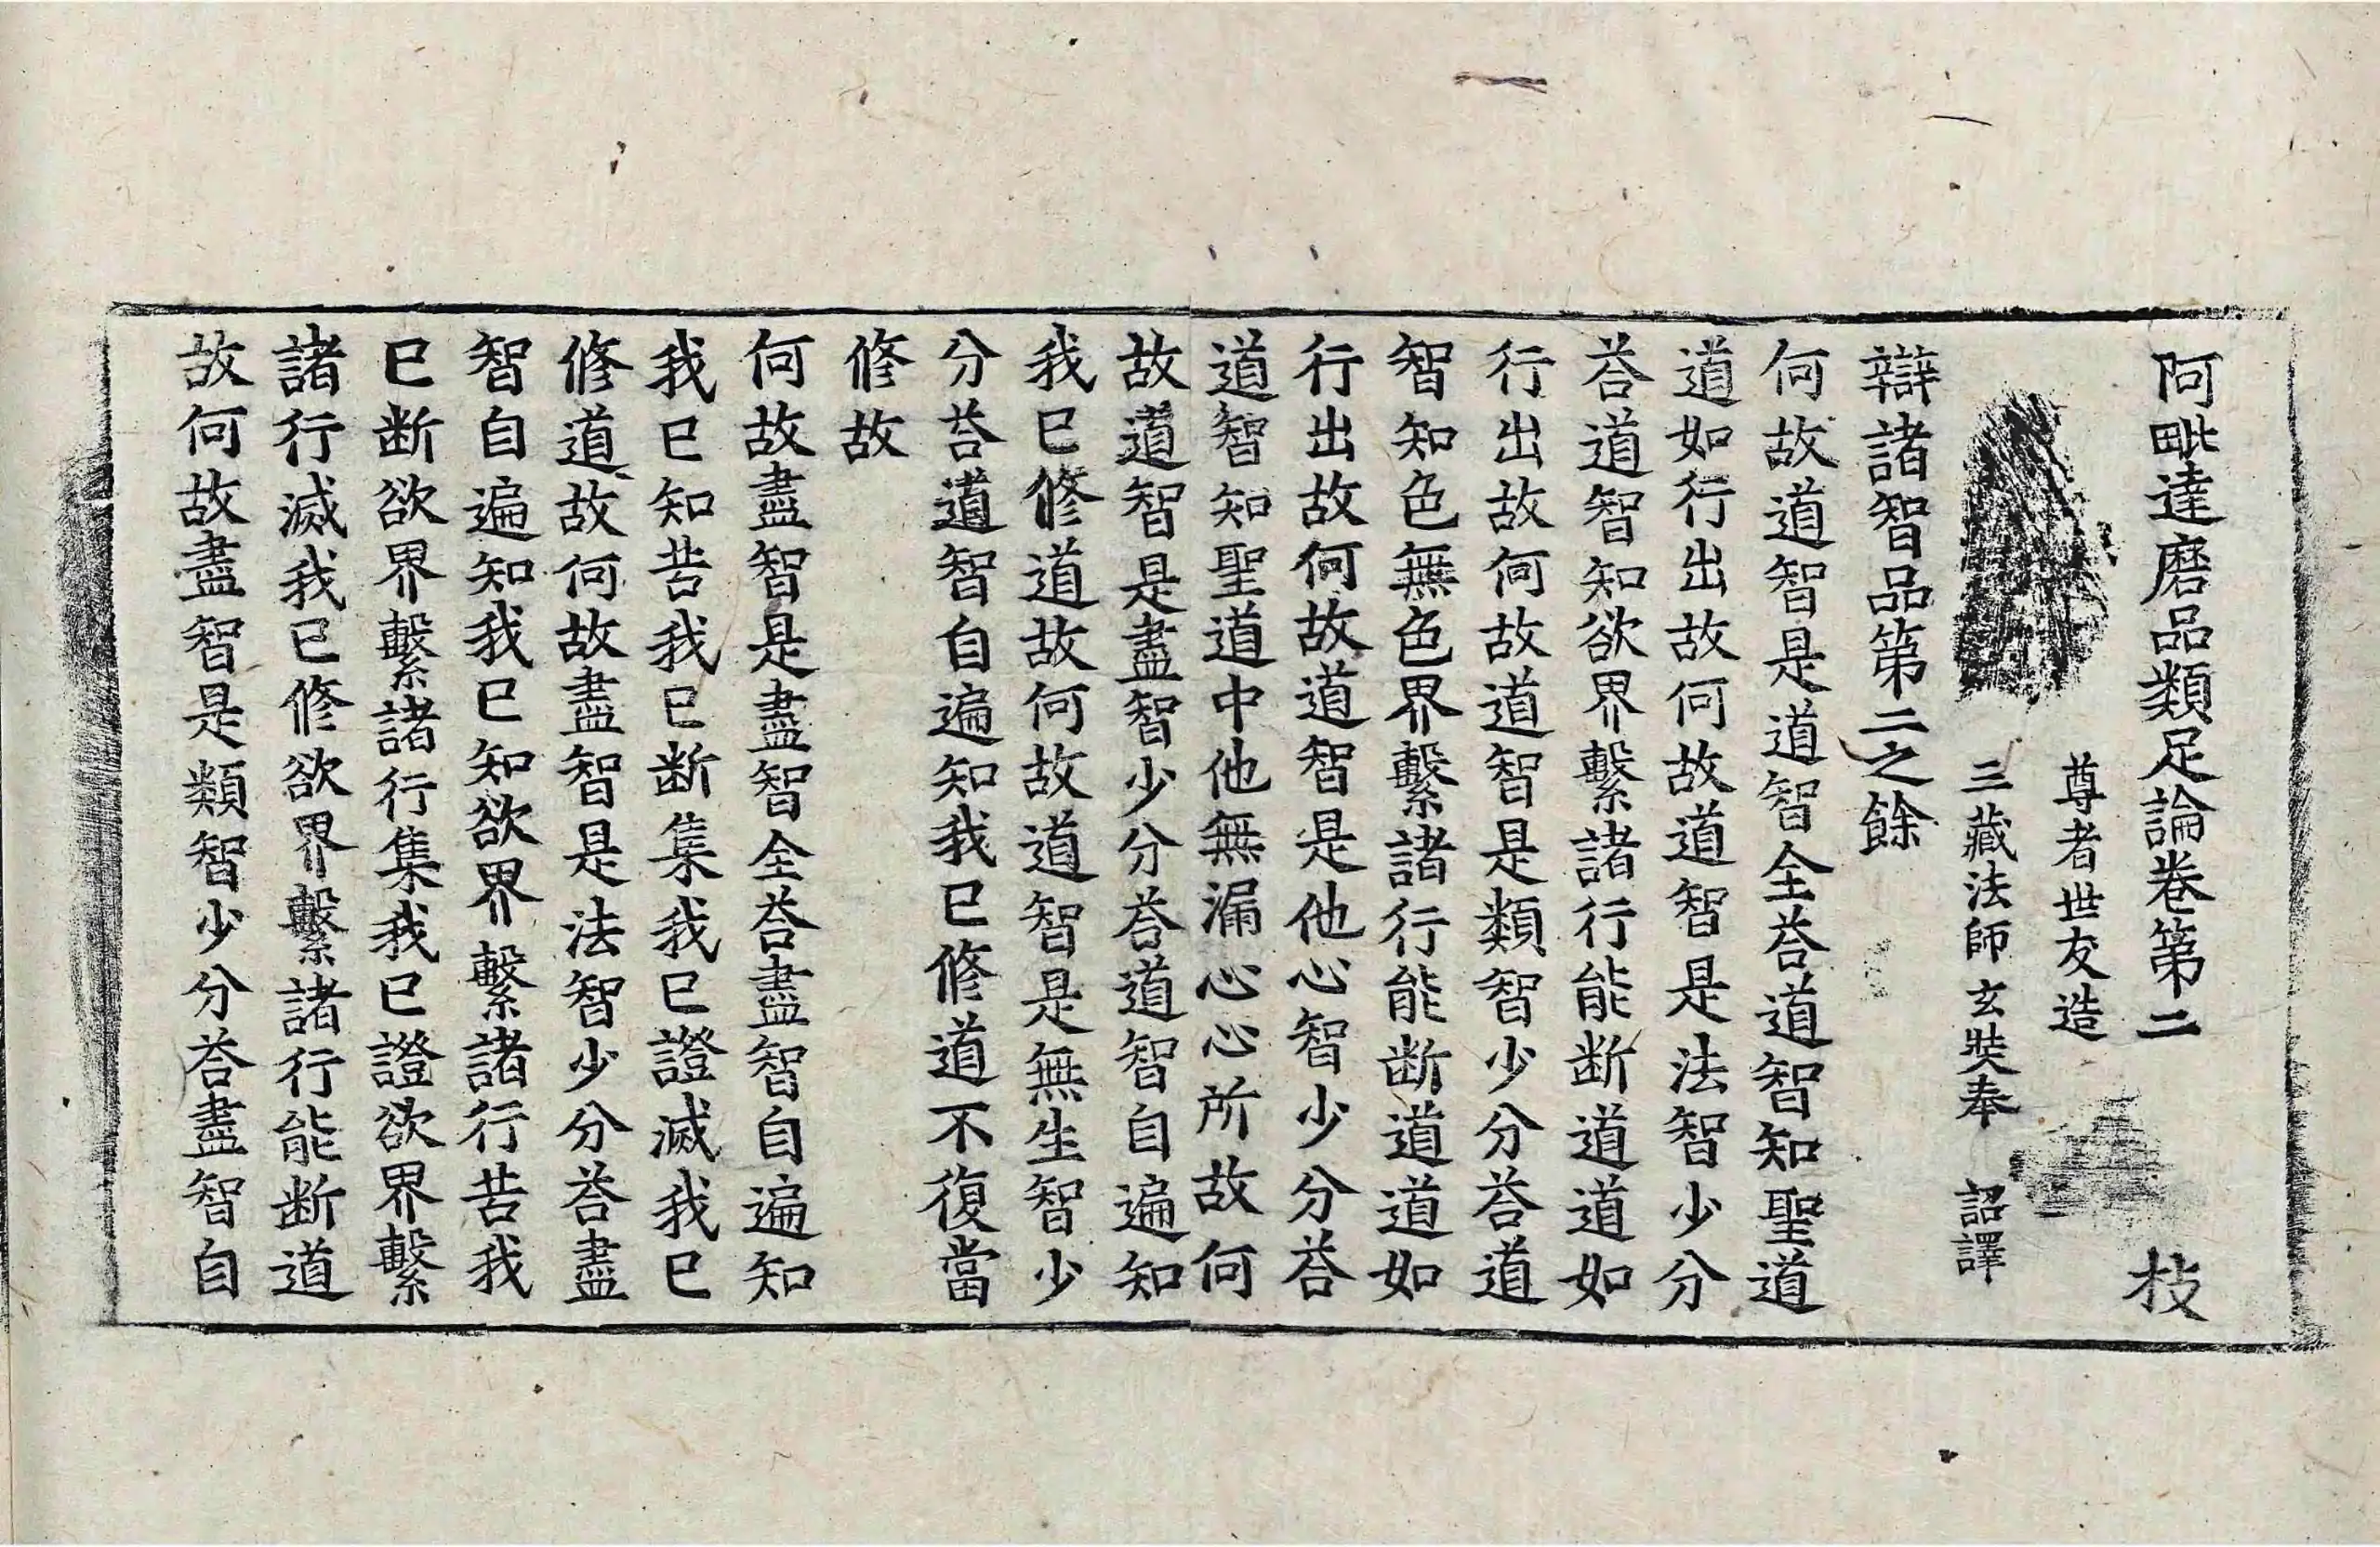 阿毗達磨品類足論卷第二　枝
尊者世友造
三藏法師玄奘奉　詔譯
辯諸智品第二之餘
何故道智是道智全荅道智知聖道
道如行出故何故道智是法智少分
荅道智知欲界繫諸行能断道道如
行出故何故道智是類智少分荅道
智知色無色界繫諸行能断道道如
行出故何故道智是他心智少分荅
道智知聖道中他無漏心心所故何
故道智是盡智少分荅道智自遍知
我已修道故何故道智是無生智少
分荅道智自遍知我已修道不復當
修故
何故盡智是盡智全荅盡智自遍知
我已知苦我已断集我已證滅我已
修道故何故盡智是法智少分荅盡
智自遍知我已知欲界繫諸行苦我
已断欲界繫諸行集我已證欲界繫
諸行滅我已修欲界繫諸行能断道
故何故盡智是類智少分荅盡智自